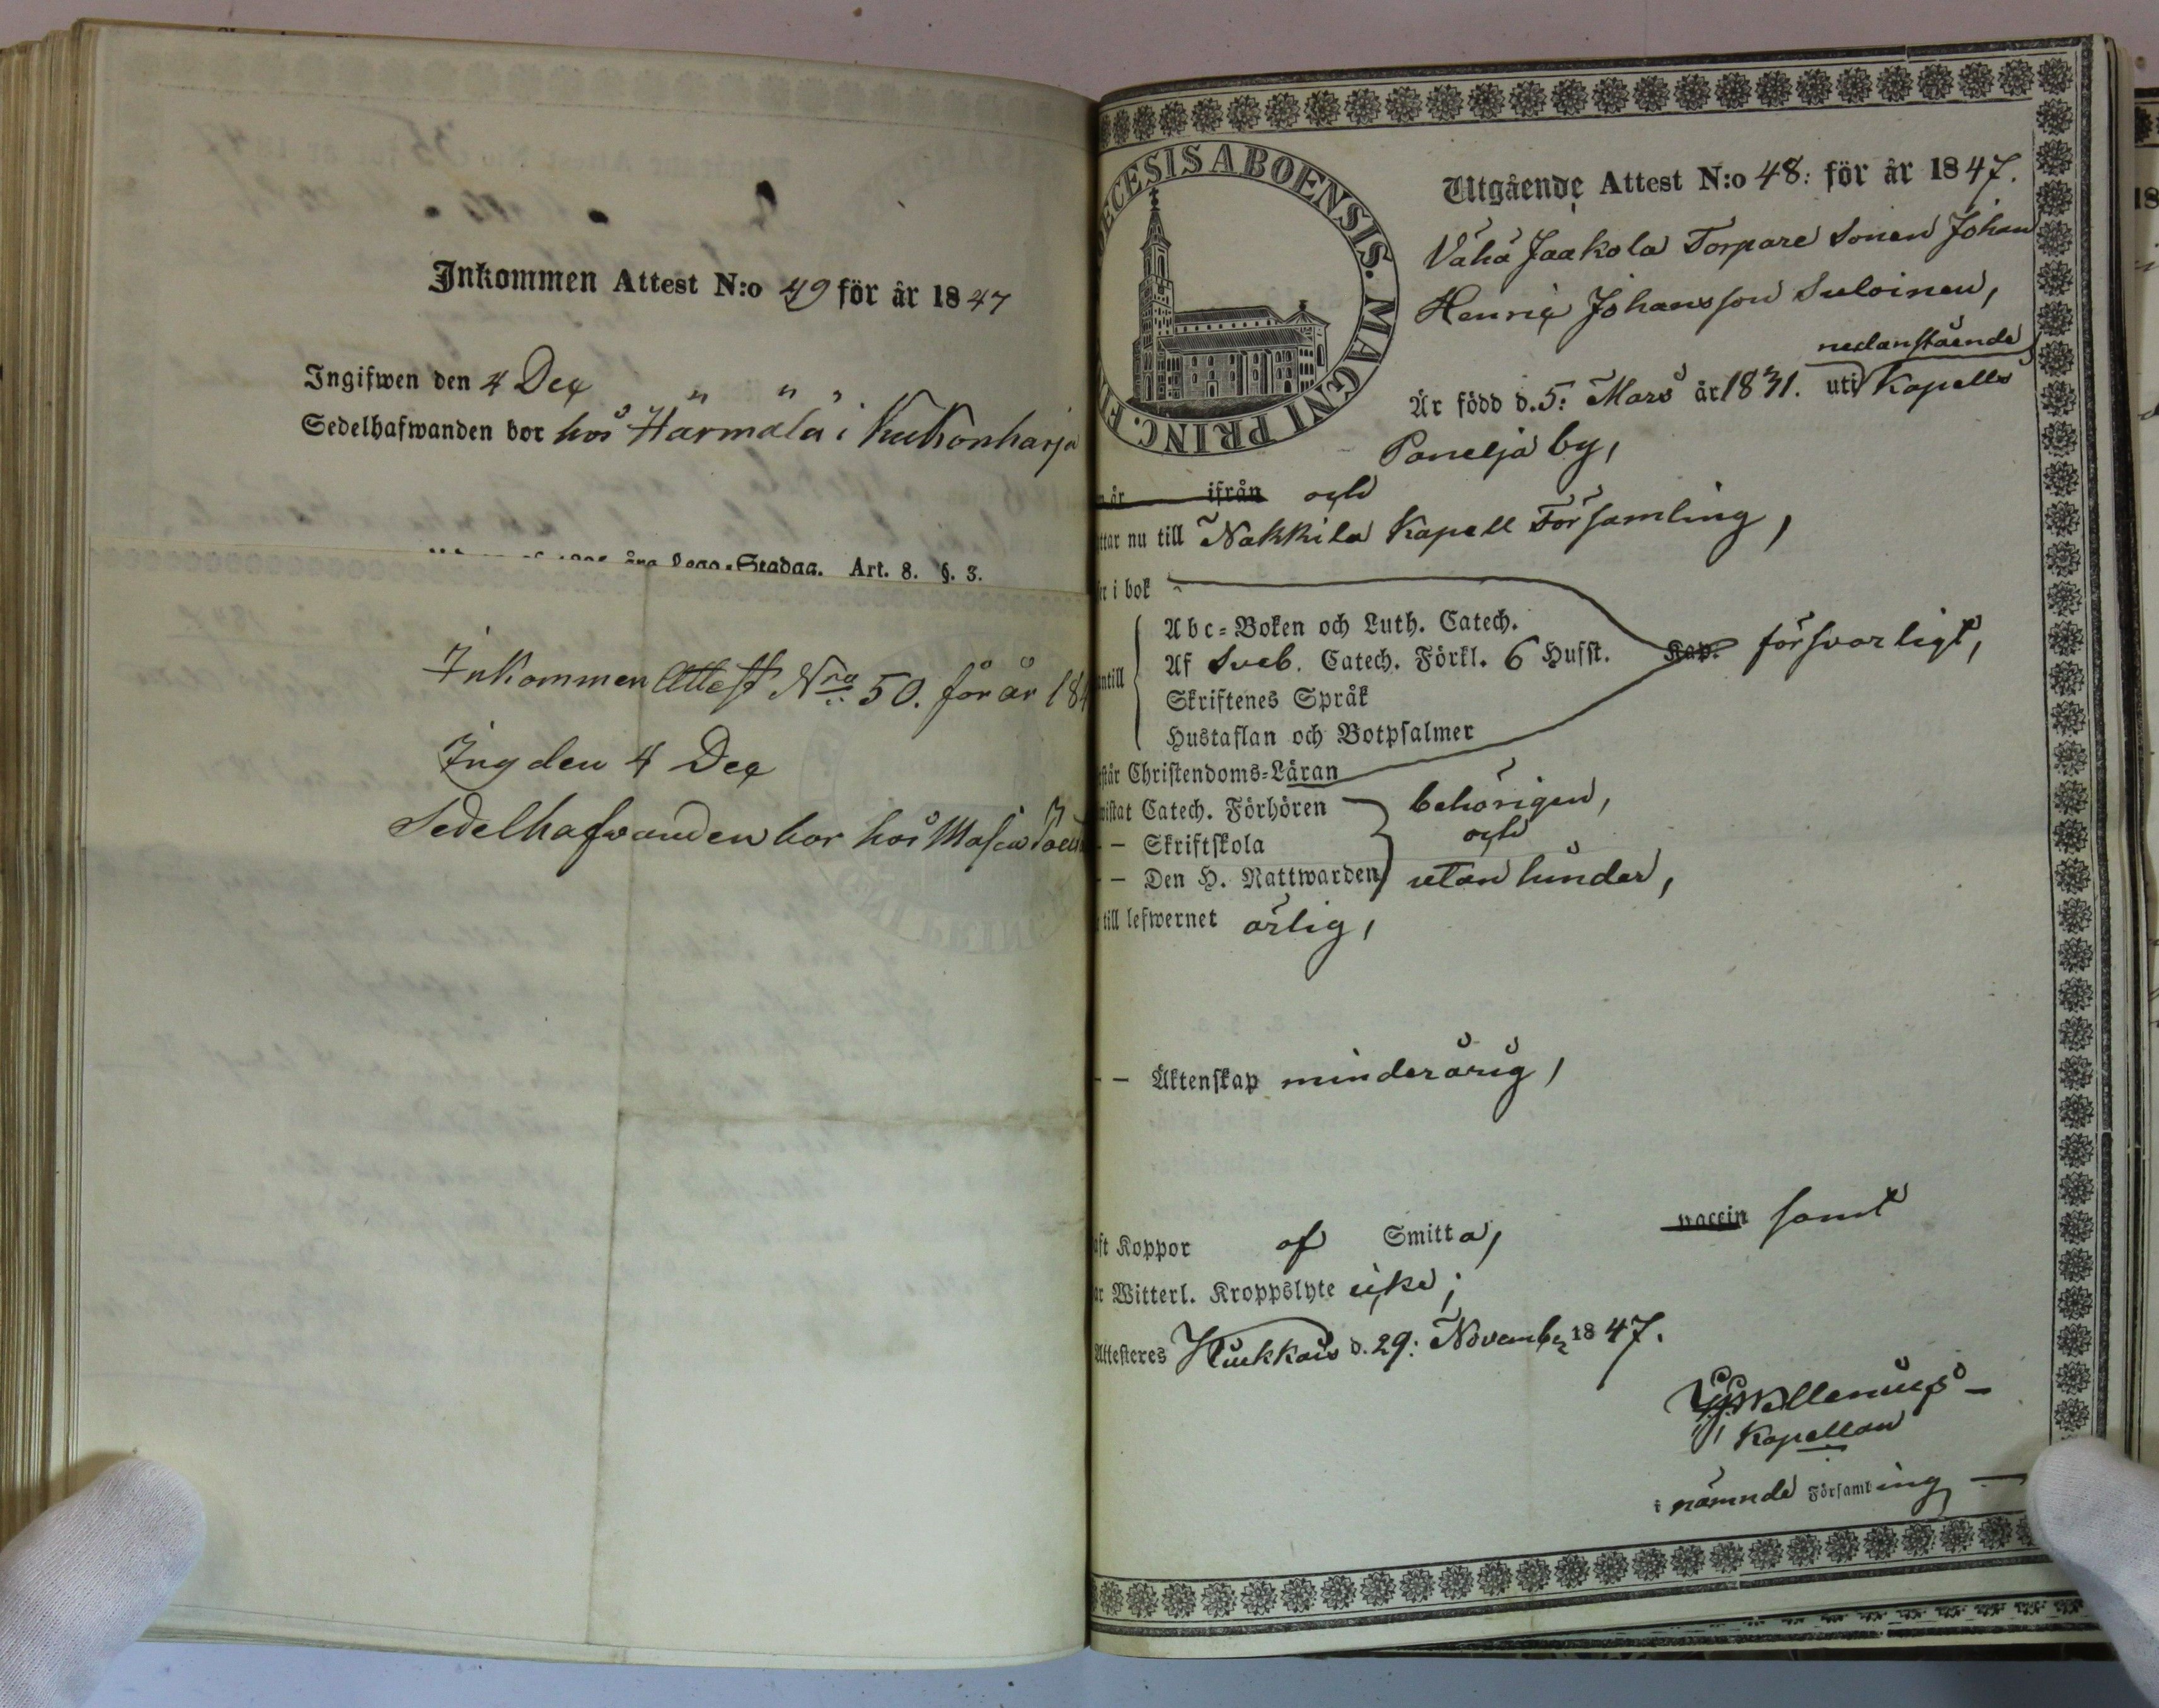 Inkommen Attest N:o 49 för år 1847
Ingifwen den 4 Dec
Sedelhafwanden bor hos Härmälä i Kukonharja
Lego-Stadga. Art. 8. §. 3.
Inkommen Attest Nro 50. för år 184
Ing den 4 Dec
Sedelhafvanden bor hos
ECESIS ABOENSIS. MAGNI PRINC. FI
Utgående Attest N:o 48: för år 1847.
Vähä Jaakola Torpare Sonen Johan
Henric Johansson Suloinen,
nedanstående
Är född d. 5: Mars år 1831. uti Kapells
Panelja by,
år ifrån och
ttar nu till Nakkila Kapell Församling,
r i bok
Abc-Boken och Luth. Catech.
Af Sveb. Catech. Förkl. 6 Hufst. Kap. försvarligt,
ntill
Skriftenes Språk
Hustaflan och Botpsalmer
står Christendoms-Läran
wistat Catech. Förhören behörigen,
– – Skriftskola och
– – Den H. Nattwarden utan hinder,
till lefwernet ärlig,
– – Äktenskap minderårig,
aft Koppor af Smitta, vaccin samt
ar Witterl. Kroppslyte icke;
Attesteres Kiukkais d. 29: Novemb 1847.
Wellenius
Kapellan
i nämnde Församling
18